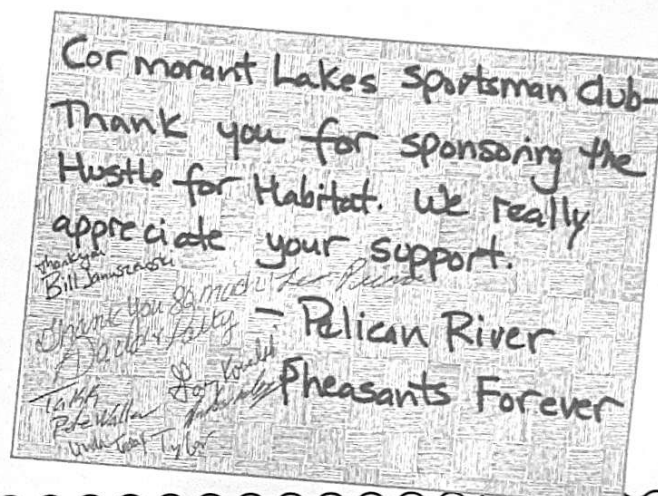 Cormorant Lakes Sportsman Club-
Thank you for sponsoring the
Hustle for Habitat. We really
appreciate your support.
Thank you
Bill Januszewski
Thank you so much!
- Pelican River
Pheasants Forever
Takk
Pete Waller
Tylor